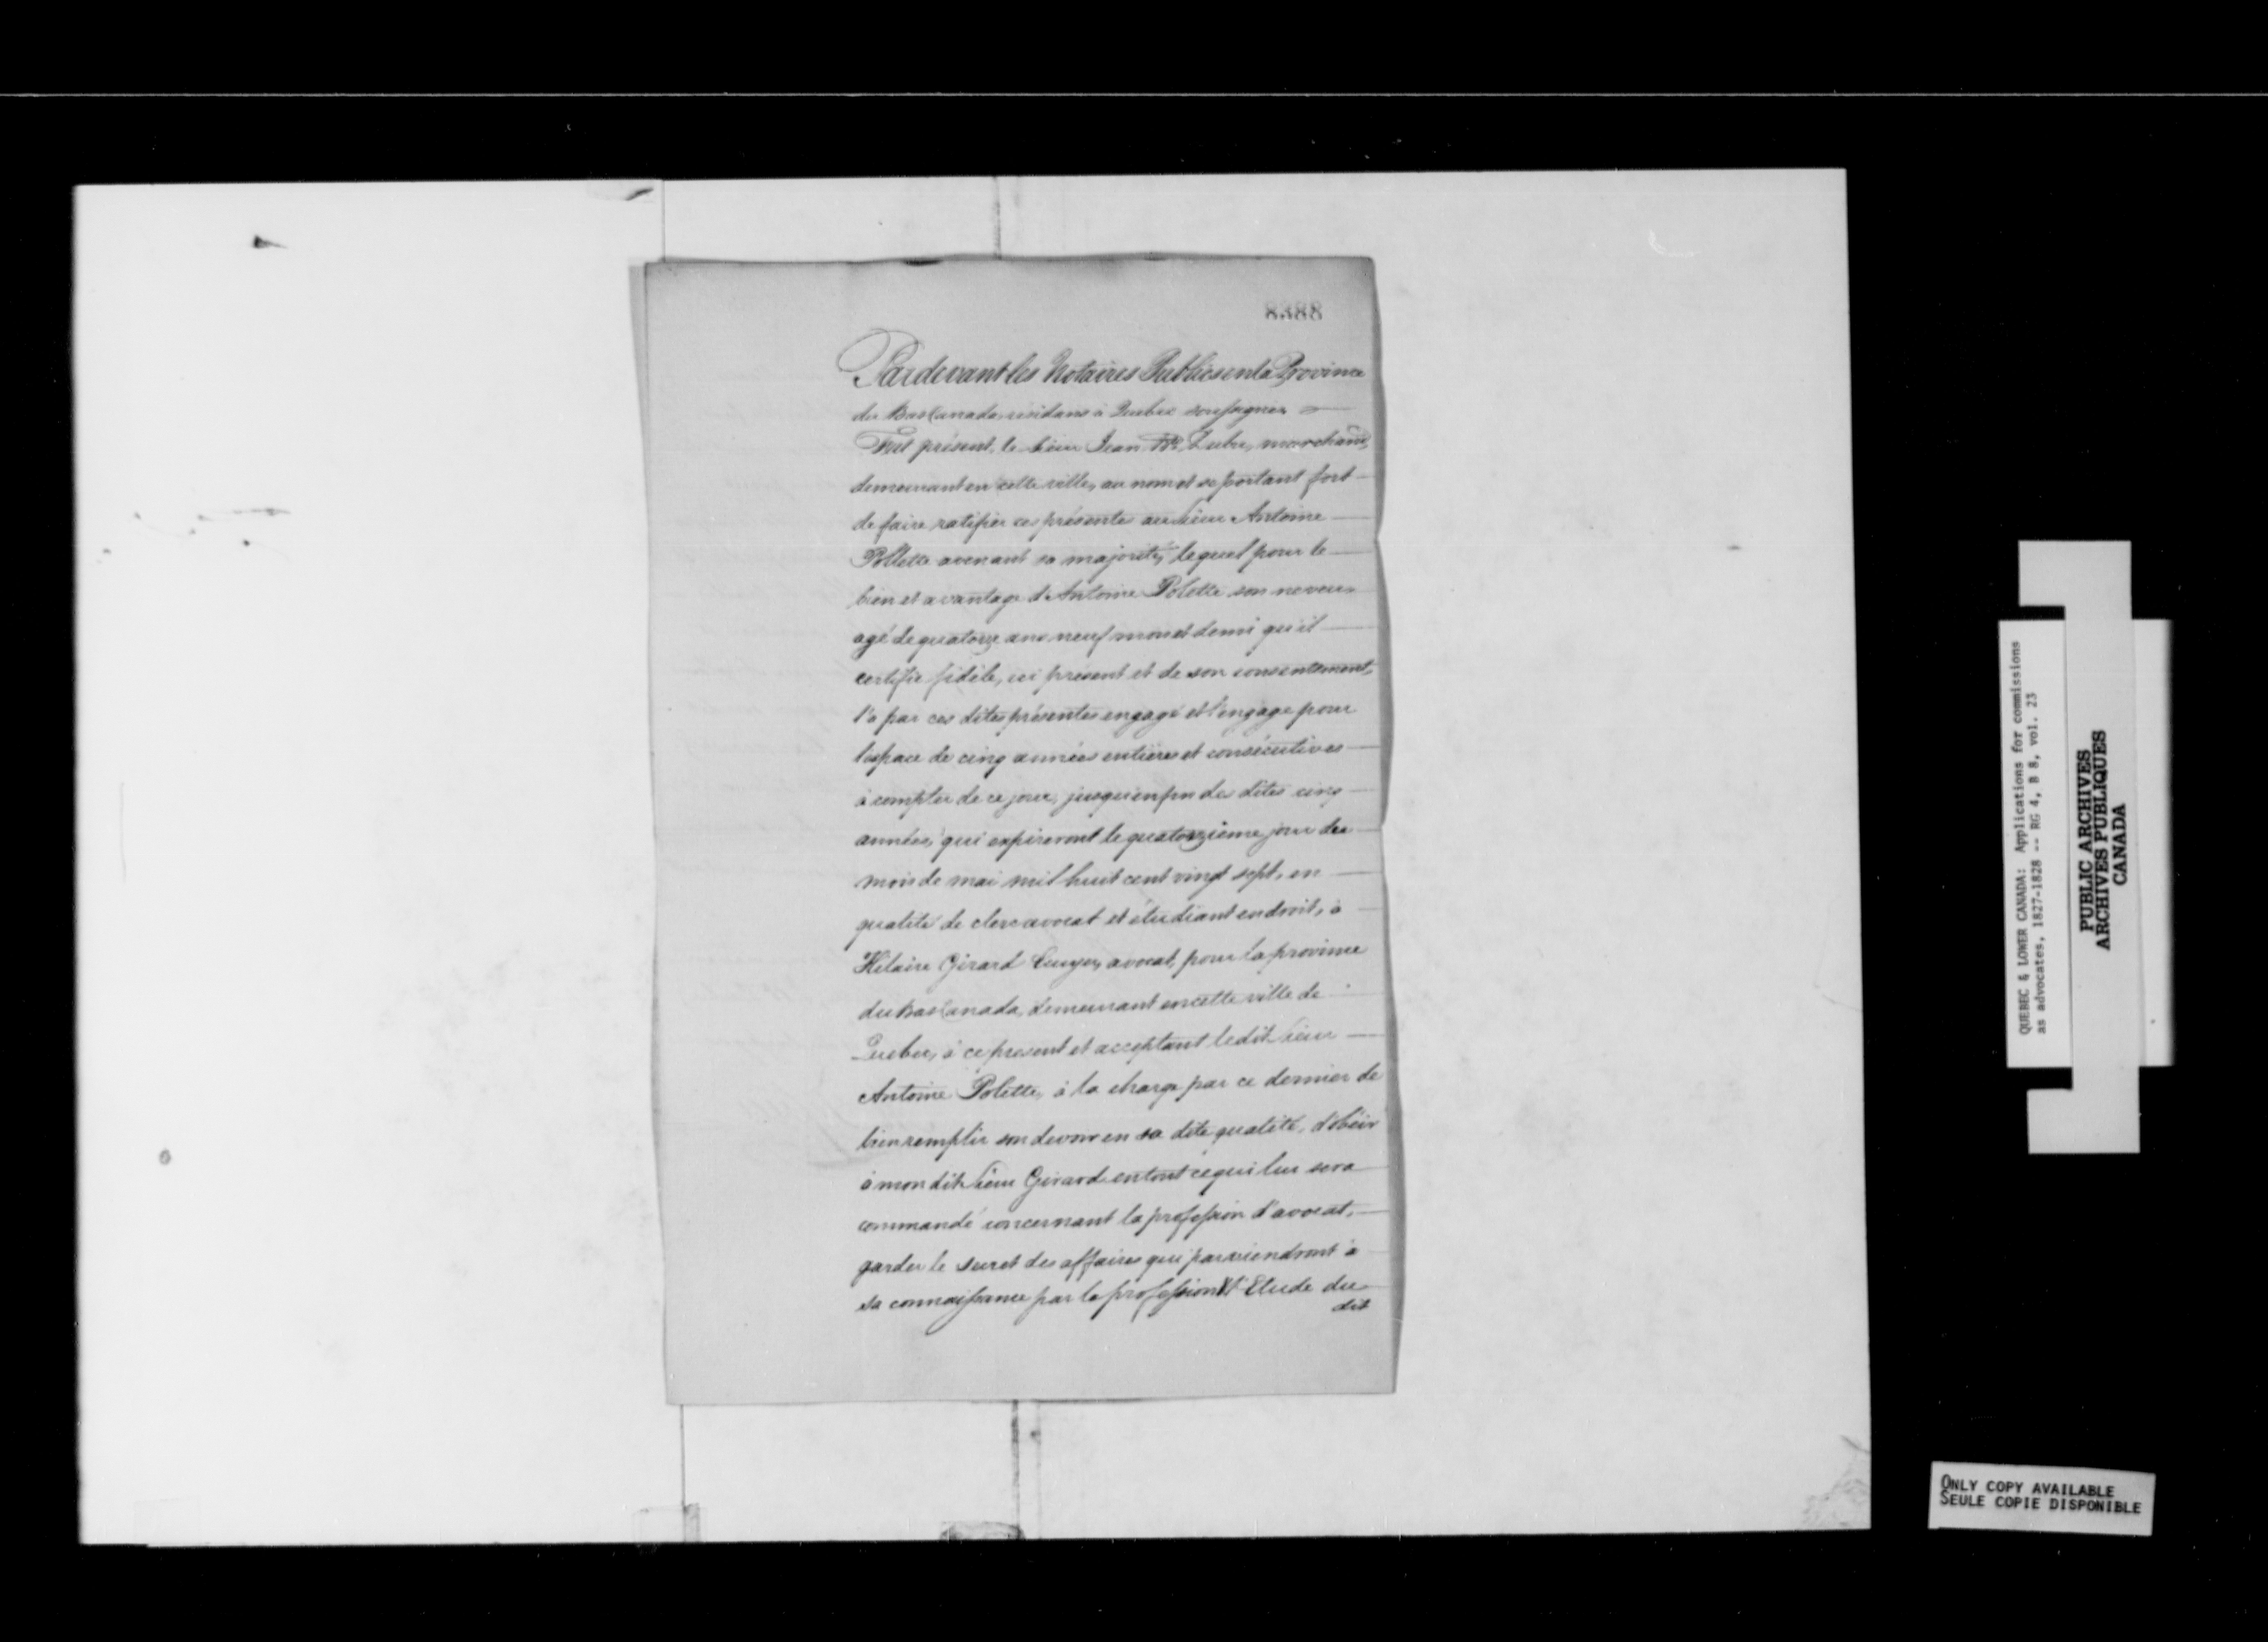 8388
Pardevant les Notaires Publics en la Province
du Bas Canada, residans à Quebec soussignés
Fut présent, le Sieur Jean Bte, marchand,
demeurant en cette ville, au nom et se portant fort
de faire ratifier ces présentes au Sieur Antoine
Pollette avenant sa majorité, lequel pour le
bien et avantage d'Antoine Polette son neveu
agé de quatorze ans neuf mois et demi qu'il
certifie fidèle, ici présent et de son consentement,
l'a par ces dites présentes engagé et l'engage pour
l'espace de cinq années entières et consécutives
à compter de ce jour, jusqu'en fin des dites cinq
années, qui expireront le quatorzième jour du
mois de mai mil huit cent vingt sept, en
qualité de clerc avocat et étudiant en droit, à
Hilaire Girard Ecuyer, avocat, pour la province
du Bas Canada, demeurant en cette ville de
Quebec, à ce present et acceptant ledit Sieur
Antoine Polette, à la charge par ce dernier de
bien remplir son devoir en sa dite qualité, d'obéir
à mon dit Sieur Girard en tout ce qui lui sera
commandé concernant la profession d'avocat,
garder le secret des affaires qui parviendront à
sa connaissance par la profession Etude du
dit
QUEBEC & LOWER CANADA: Applications for commissions
as advocates, 1827-1828 -- RG 4, B 8, vol. 23
PUBLIC ARCHIVES
ARCHIVES PUBLIQUES
CANADA
ONLY COPY AVAILABLE
SEULE COPIE DISPONIBLE